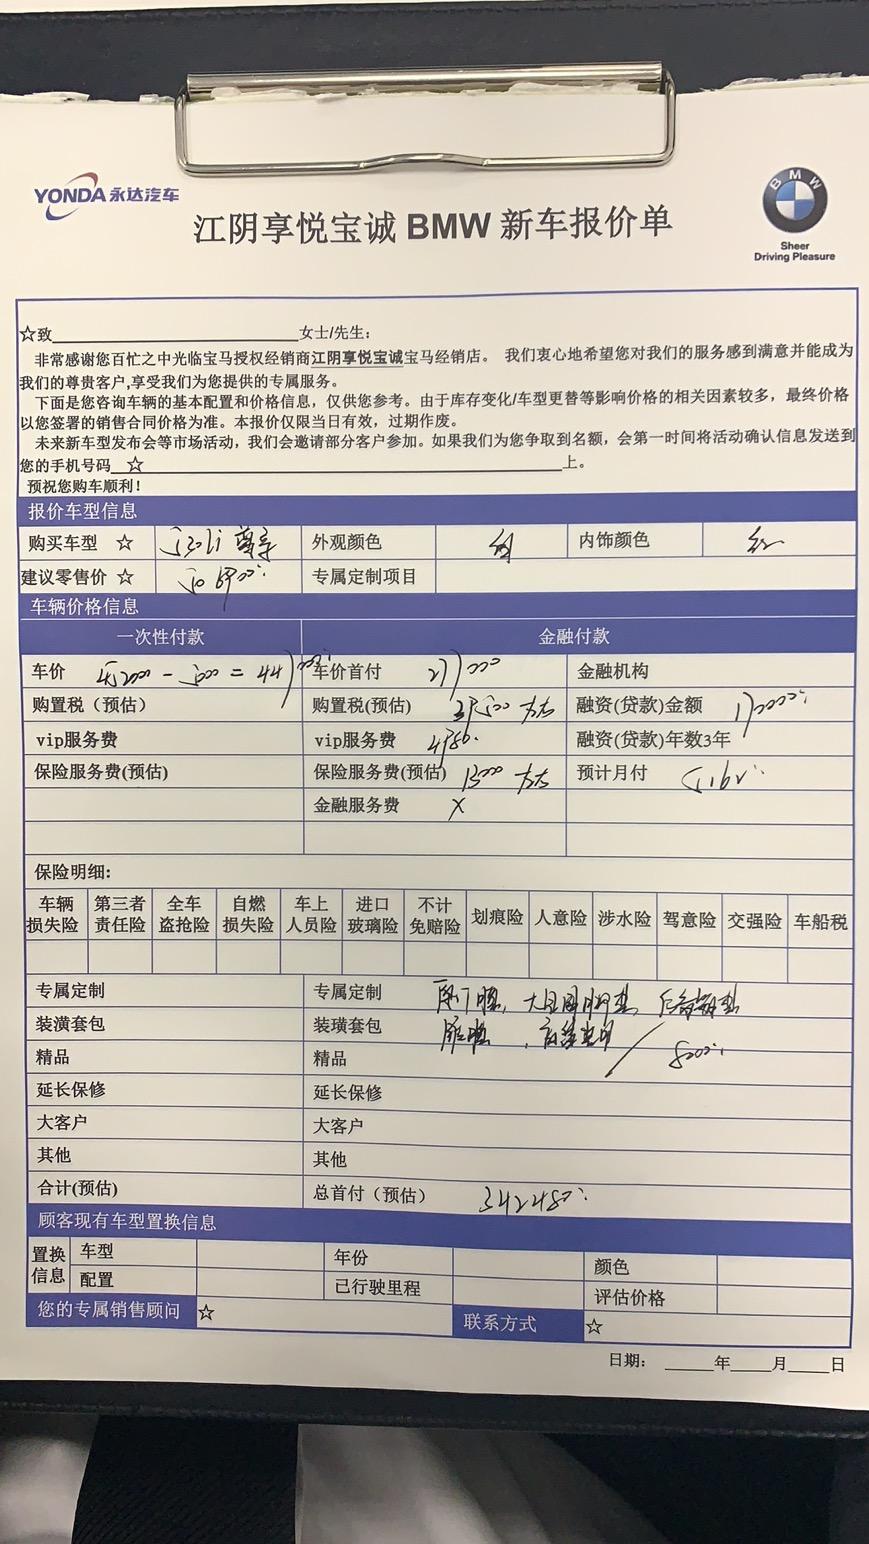 YONDA 永达汽车
BMW
Sheer
Driving Pleasure
江阴享悦宝诚 BMW 新车报价单
☆致 女士/先生:
非常感谢您百忙之中光临宝马授权经销商江阴享悦宝诚宝马经销店。 我们衷心地希望您对我们的服务感到满意并能成为
我们的尊贵客户,享受我们为您提供的专属服务。
下面是您咨询车辆的基本配置和价格信息，仅供您参考。由于库存变化/车型更替等影响价格的相关因素较多，最终价格
以您签署的销售合同价格为准。本报价仅限当日有效，过期作废。
未来新车型发布会等市场活动，我们会邀请部分客户参加。如果我们为您争取到名额，会第一时间将活动确认信息发送到
您的手机号码 ☆ 上。
预祝您购车顺利!
报价车型信息
购买车型 ☆ 530Li 外观颜色 内饰颜色
建议零售价 ☆ 专属定制项目
车辆价格信息
一次性付款 金融付款
车价 车价首付 金融机构
购置税（预估） 购置税(预估) 融资(贷款)金额
vip服务费 vip服务费 融资(贷款)年数3年
保险服务费(预估) 保险服务费(预估) 预计月付
金融服务费 X
保险明细:
车辆损失险 第三者责任险 全车盗抢险 自燃损失险 车上人员险 进口玻璃险 不计免赔险 划痕险 人意险 涉水险 驾意险 交强险 车船税
专属定制 专属定制
装潢套包 装璜套包
精品 精品 8000
延长保修 延长保修
大客户 大客户
其他 其他
合计(预估) 总首付（预估） 342480
顾客现有车型置换信息
置换信息 车型 年份 颜色
配置 已行驶里程 评估价格
您的专属销售顾问 ☆ 联系方式 ☆
日期: 年 月 日